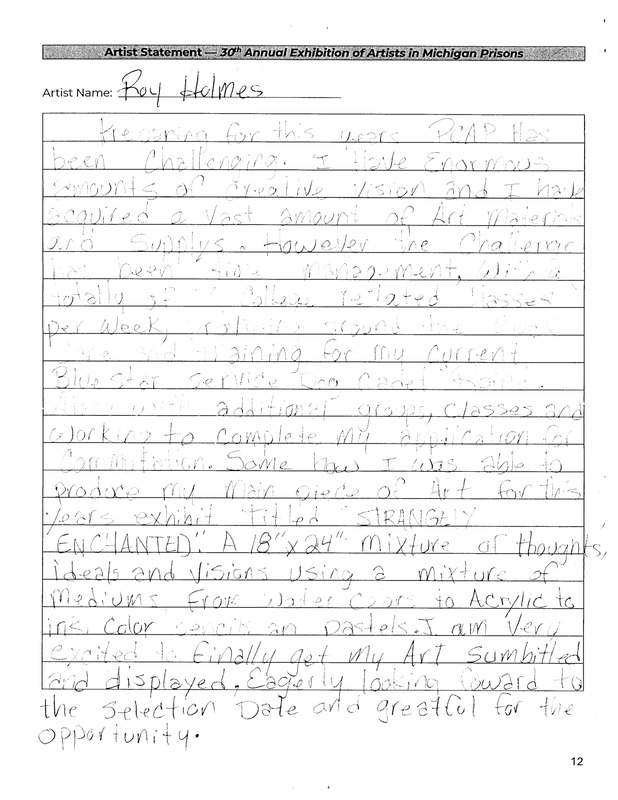 Artist Statement — 30th Annual Exhibition of Artists in Michigan Prisons
Artist Name: Roy Holmes
Preparing for this years PCAP Has
been Challenging. I Have Enormous
amounts of creative vision and I have
acquired a vast amount of Art Materials
and Supplys. However the Challenge
has been time management, With a
totally of College related classes
per week, around the
and Training for my current
Blue Star Service Dog Cadet
Along with additional groups, classes and
working to complete my application for
Commutation. Some how I was able to
produce my Main piece of Art for this
years exhibit Titled "STRANGELY
ENCHANTED". A 18"x24" mixture of thoughts,
ideals and visions using a mixture of
Mediums From Water Colors to Acrylic to
ink, color pencils an Pastels. I am Very
excited to finally get my Art sumbitted
and displayed. Eagerly looking foward to
the Selection Date and greatful for the
opportunity.
12